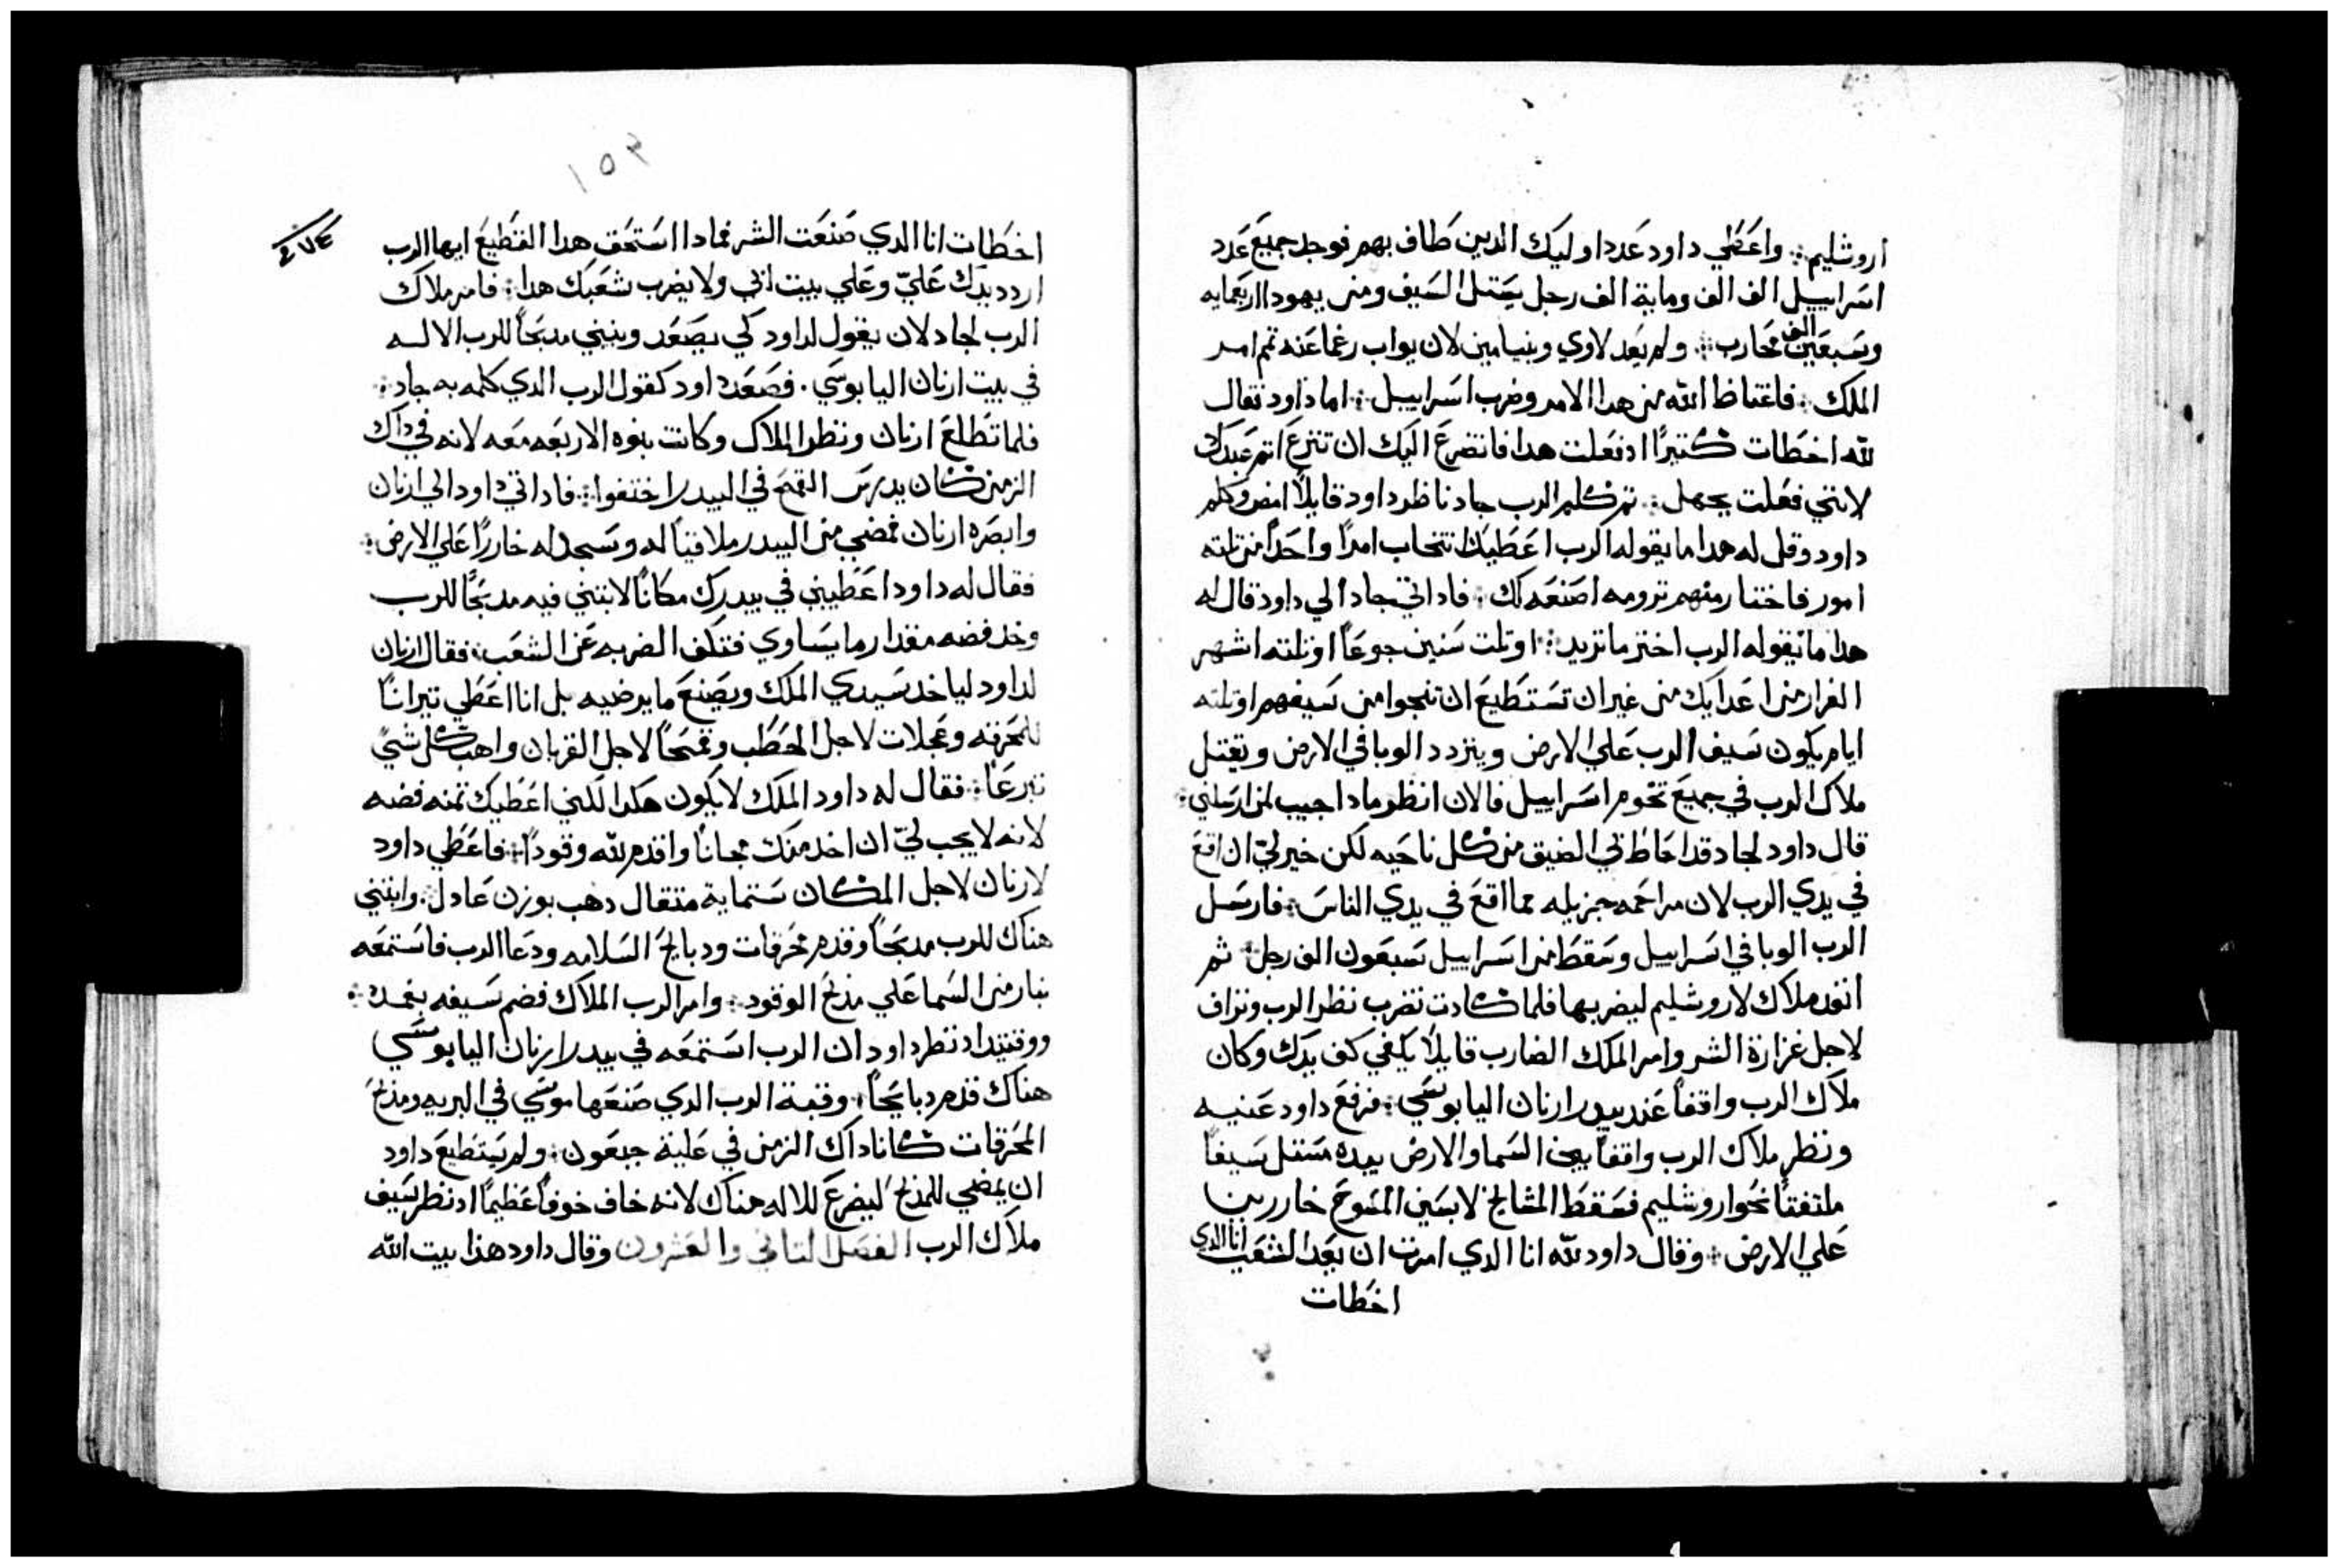 اروشليم ۞ واعَطي داود عَدد اوليك الدين طاف بهم فوجد جميع عَدد
اسَراييل الف الف وماية الف رجل يسَتل السَيف ومن يهودا اربعمايه
وسَبعَين الف محَارب ۞ ولم يعَد لاوي وبنيامين لان يواب رغما عَنه تمم امر
الملك ۞ فاغتاظ الله من هدا الامر وضرب اسَراييل ۞ اما داود فقال
لله اخطات كتيرًا ادفعَلت هدا فانضرعَ اليَك ان تنزعَ اتم عَبدك
لانني فعَلت بجهل ۞ تم كلم الرب جاد ناظر داود قايلاً امض وكلم
داود وقل له هدا ما يقوله الرب اعَطيك انتخاب امرًا واحَدًا من تلته
امور فاختار منهم ترومه اصنَعَه لك ۞ فاد اتي جاد الي داود قال له
هدا ما يقوله الرب اختر ما تريد ۞ اوتلت سَنين جوعَاً اوتلته اشهر
الفرار من اعَدايك من غير ان تسَتطيعَ ان تنجوا من سَيفهم اوتلته
ايام يكون سَيف الرب عَلي الارض ويتردد الوبا في الارض ويقتل
ملاك الرب في جميعَ تخوم اسَراييل فالان انظر مادا اجيب لمن ارسَلني ۞
قال داود لجاد قد احَاط بي الضيق من كل ناحَيه لكن خير لي ان اقعَ
في يدي الرب لان مراحَمه جزيله مما اقعَ في يدي الناسَ ۞ فارسَل
الرب الوبا في اسَراييل وسَقط من اسَراييل سَبعَون الف رجل ۞ ثم
انفد ملاك لاروشليم ليضربها فلما كادت تضرب نظر الرب وتراف
لاجل غزارة الشر وامر الملك الضارب قايلاً يكفي كف يدك وكان
ملاك الرب واقفاً عَند بيدر ارنان اليابوسَي ۞ فرفعَ داود عَنيه
ونظر ملاك الرب واقفاً بين السَما والارض بيده مستل سَيفاً
ملتفتاً نحَو اروشليم فسَقط المشايخ لابسَين المسَوحَ خاررين
عَلي الارض ۞ وقال داود لله انا الدي امرت ان يعَد الشعَب انا الدي
اخطات
١٥٣
٤٧٤
اخطات انا الدي صَنعَت الشر فمادا اسَتحَق هدا القطيعَ ايها الرب
اردد يدك عَليّ وعَلي بيت ابي ولا يضرب شعَبك هدا ۞ فامر ملاك
الرب لجاد لان يقول لداود كي يصَعَد ويبني مدبحَاً للرب الاله
في بيت ارنان اليابوسَي ۞ فصَعَد داود كقول الرب الدي كلمه به جاد ۞
فلما تطلعَ ارنان ونظر الملاك وكانت بنوه الاربعَه معَه لانه في داك
الزمن كان يدرسَ القمحَ في البيدر اختفوا ۞ فاد اتي داود الي ارنان
وابصَره ارنان فمضي من البيدر ملاقياً له وسَجد له خاررًا عَلي الارض ۞
فقال له داود اعَطيني في بيدرك مكانًا لابتني فيه مدبحَاً للرب
وخد فضه مقدار ما يسَاوي فتكف الضربه عَن الشعَب ۞ فقال ارنان
لداود لياخد سَيدي الملك ويصَنعَ ما يرضيه بل انا اعَطي تيرانًا
للمحَرقه وعَجلات لاجل الحَطب وقمحَاً لاجل القربان واهب كل شي
تبرعَاً ۞ فقال له داود الملك لا يكون هكدا لكني اعَطيك تمنه فضه
لانه لا يجب ليّ ان اخد منك مجاناً واقدم لله وقوداً ۞ فاعَطي داود
لارنان لاجل المكان سَتماية متقال دهب بوزن عَادل ۞ وابتني
هناك للرب مدبحَاً وقدم محَرقات ودبايحَ السَلامه ودعَا الرب فاسَتمعَه
بنار من السَما عَلي مذبحَ الوقود ۞ وامر الرب الملاك فضم سَيفه بغمده ۞
ووقتيد اد نظر داود ان الرب اسَتمعَه في بيدر ارنان اليابوسَي
هناك قدم دبايحَاً ۞ وقبة الرب الدي صَنعَها موسَي في البريه ومذبحَ
المحَرقات كانا داك الزمن في عَلية جبعَون ۞ ولم يسَتطيعَ داود
ان يمضي للمذبحَ ليضرعَ للاله هناك لانه خاف خوفاً عَظيماً اد نظر سَيف
ملاك الرب الفصَل التاني والعَشرون وقال داود هذا بيت الله